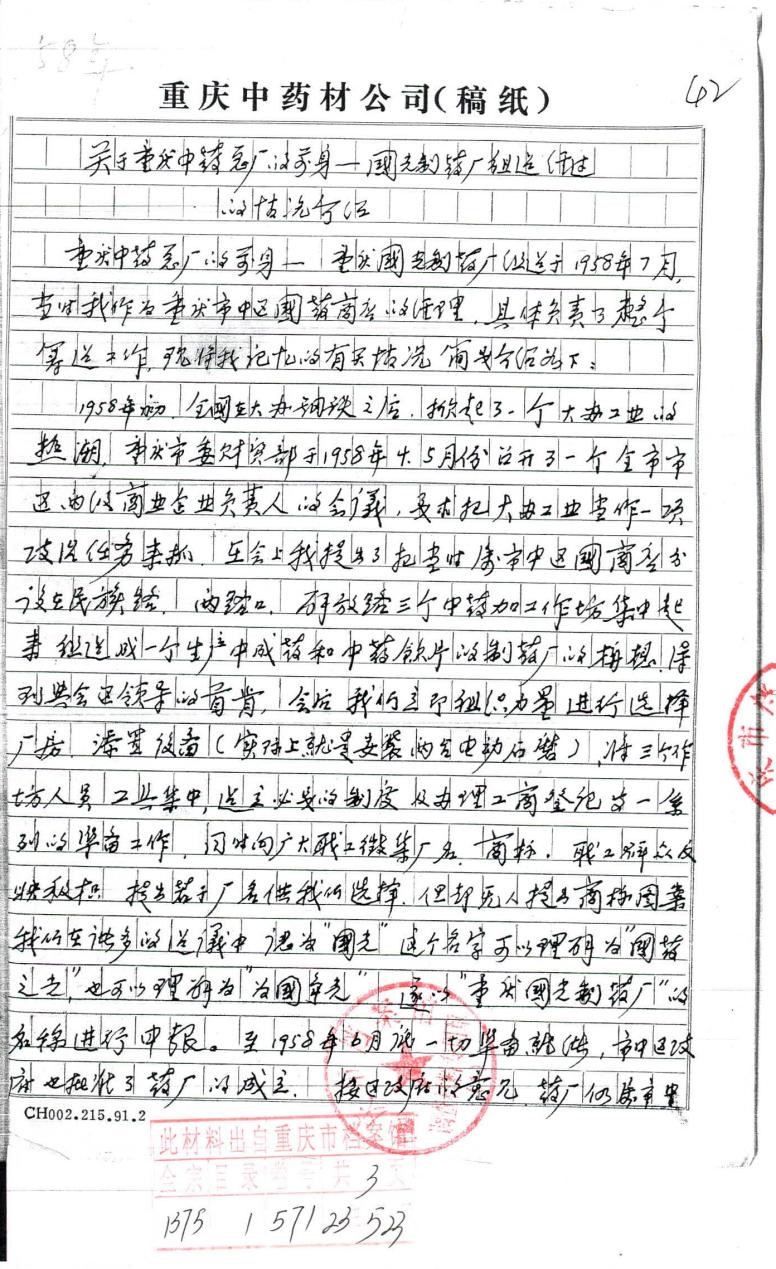 58年
42
重庆中药材公司(稿纸)
关于重庆中药总厂的前身—國光制药厂组建经过
的情况介绍
重庆中药总厂的前身— 重庆國光制药厂组建于1958年7月,
当时我作为重庆市中区國药商店的经理,具体负责了整个
筹建工作,现将我记忆的有关情况简要介绍如下:
1958年初,全國在大办钢铁之后,掀起了一个大办工业的
热潮,重庆市委财贸部于1958年4.5月份召开了一个全市市
区两级商业企业负责人的会議,要求把大办工业当作一项
政治任务来抓,在会上我提出了把当时属市中区國商店分
设在民族路、两路口、解放路三个中药加工作坊集中起
来组建成一个生产中成药和中药饮片的制药厂的构想,得
到与会区领导的首肯,会后我们立即组织力量进行选择
厂房、添置设备(实际上就是安装两台电动石磨),将三个作
坊人员工具集中,建立必要的制度及办理工商登纪等一系
列的準备工作,同时向广大职工徵集厂名、商标,职工群众反
映积极,提出若干厂名供我们选择,但却无人提出商标图案
我们在諸多的建議中认为"國光"这个名字可以理解为"國药
之光"也可以理解为"为國争光" 遂以"重庆國光制药厂"的
名称进行申报。至1958年6月底一切準备就绪,市中区政
府也批准了药厂的成立,按区政府的意见,药厂仍属市中
CH002.215.91.2
此材料出自重庆市档案馆
全宗 目录 卷号 共3页
1375 1 571 23 523